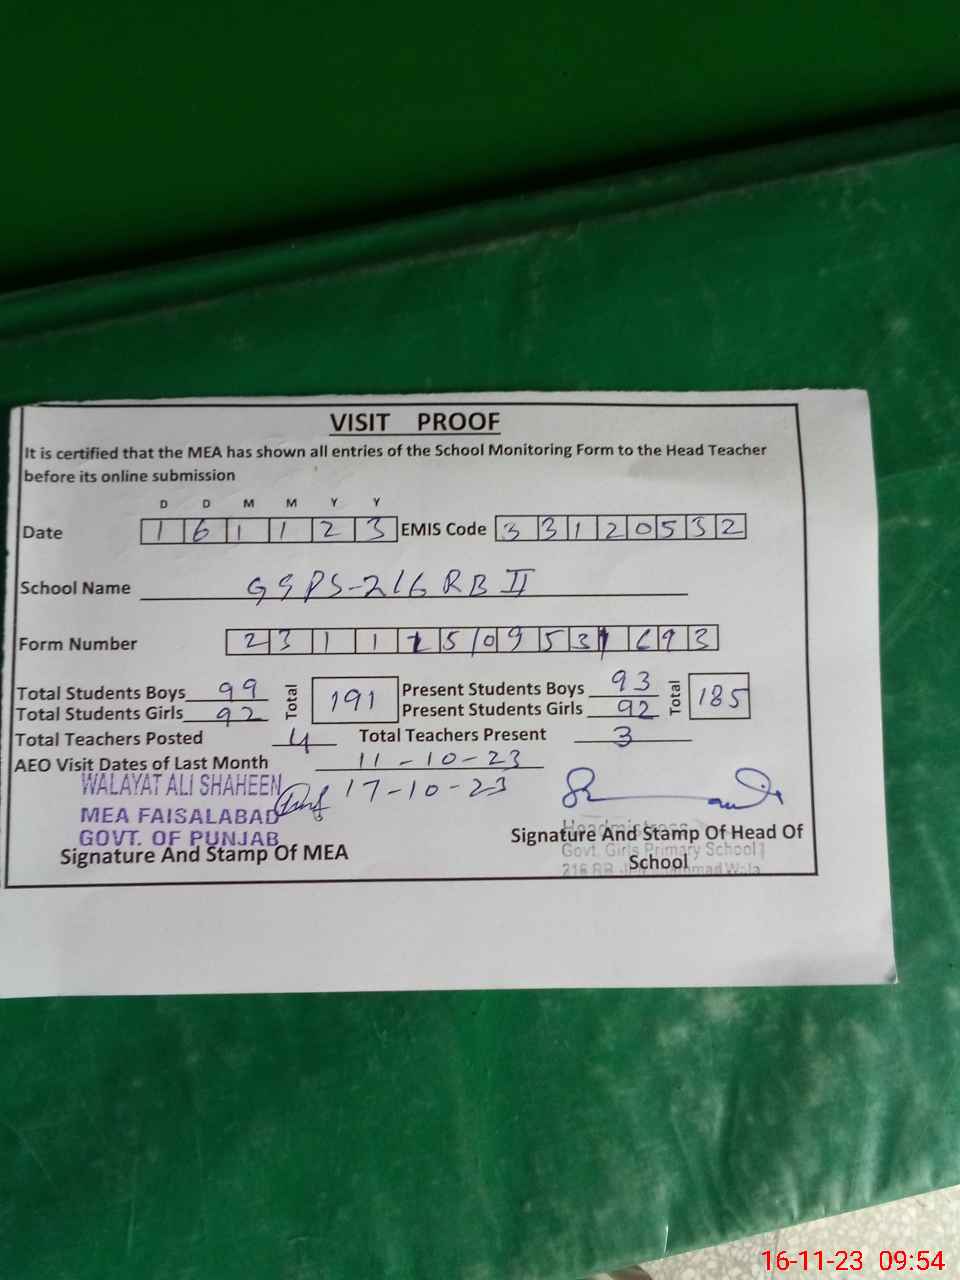 VISIT PROOF
It is certified that the MEA has shown all entries of the School Monitoring Form to the Head Teacher
before its online submission
D D M M Y Y
Date 1 6 1 1 2 3 EMIS Code 3 3 1 2 0 5 3 2
School Name GGPS-216 RB II
Form Number 2 3 1 1 1 5 0 9 5 3 1 6 9 3
Total Students Boys 99 Total 191 Present Students Boys 93 Total 185
Total Students Girls 92 Present Students Girls 92
Total Teachers Posted 4 Total Teachers Present 3
AEO Visit Dates of Last Month 11-10-23
WALAYAT ALI SHAHEEN 17-10-23
MEA FAISALABAD
GOVT. OF PUNJAB
Signature And Stamp Of MEA
Headmistress
Signature And Stamp Of Head Of
Govt. Girls Primary School
School
216 RB Wala
16-11-23 09:54